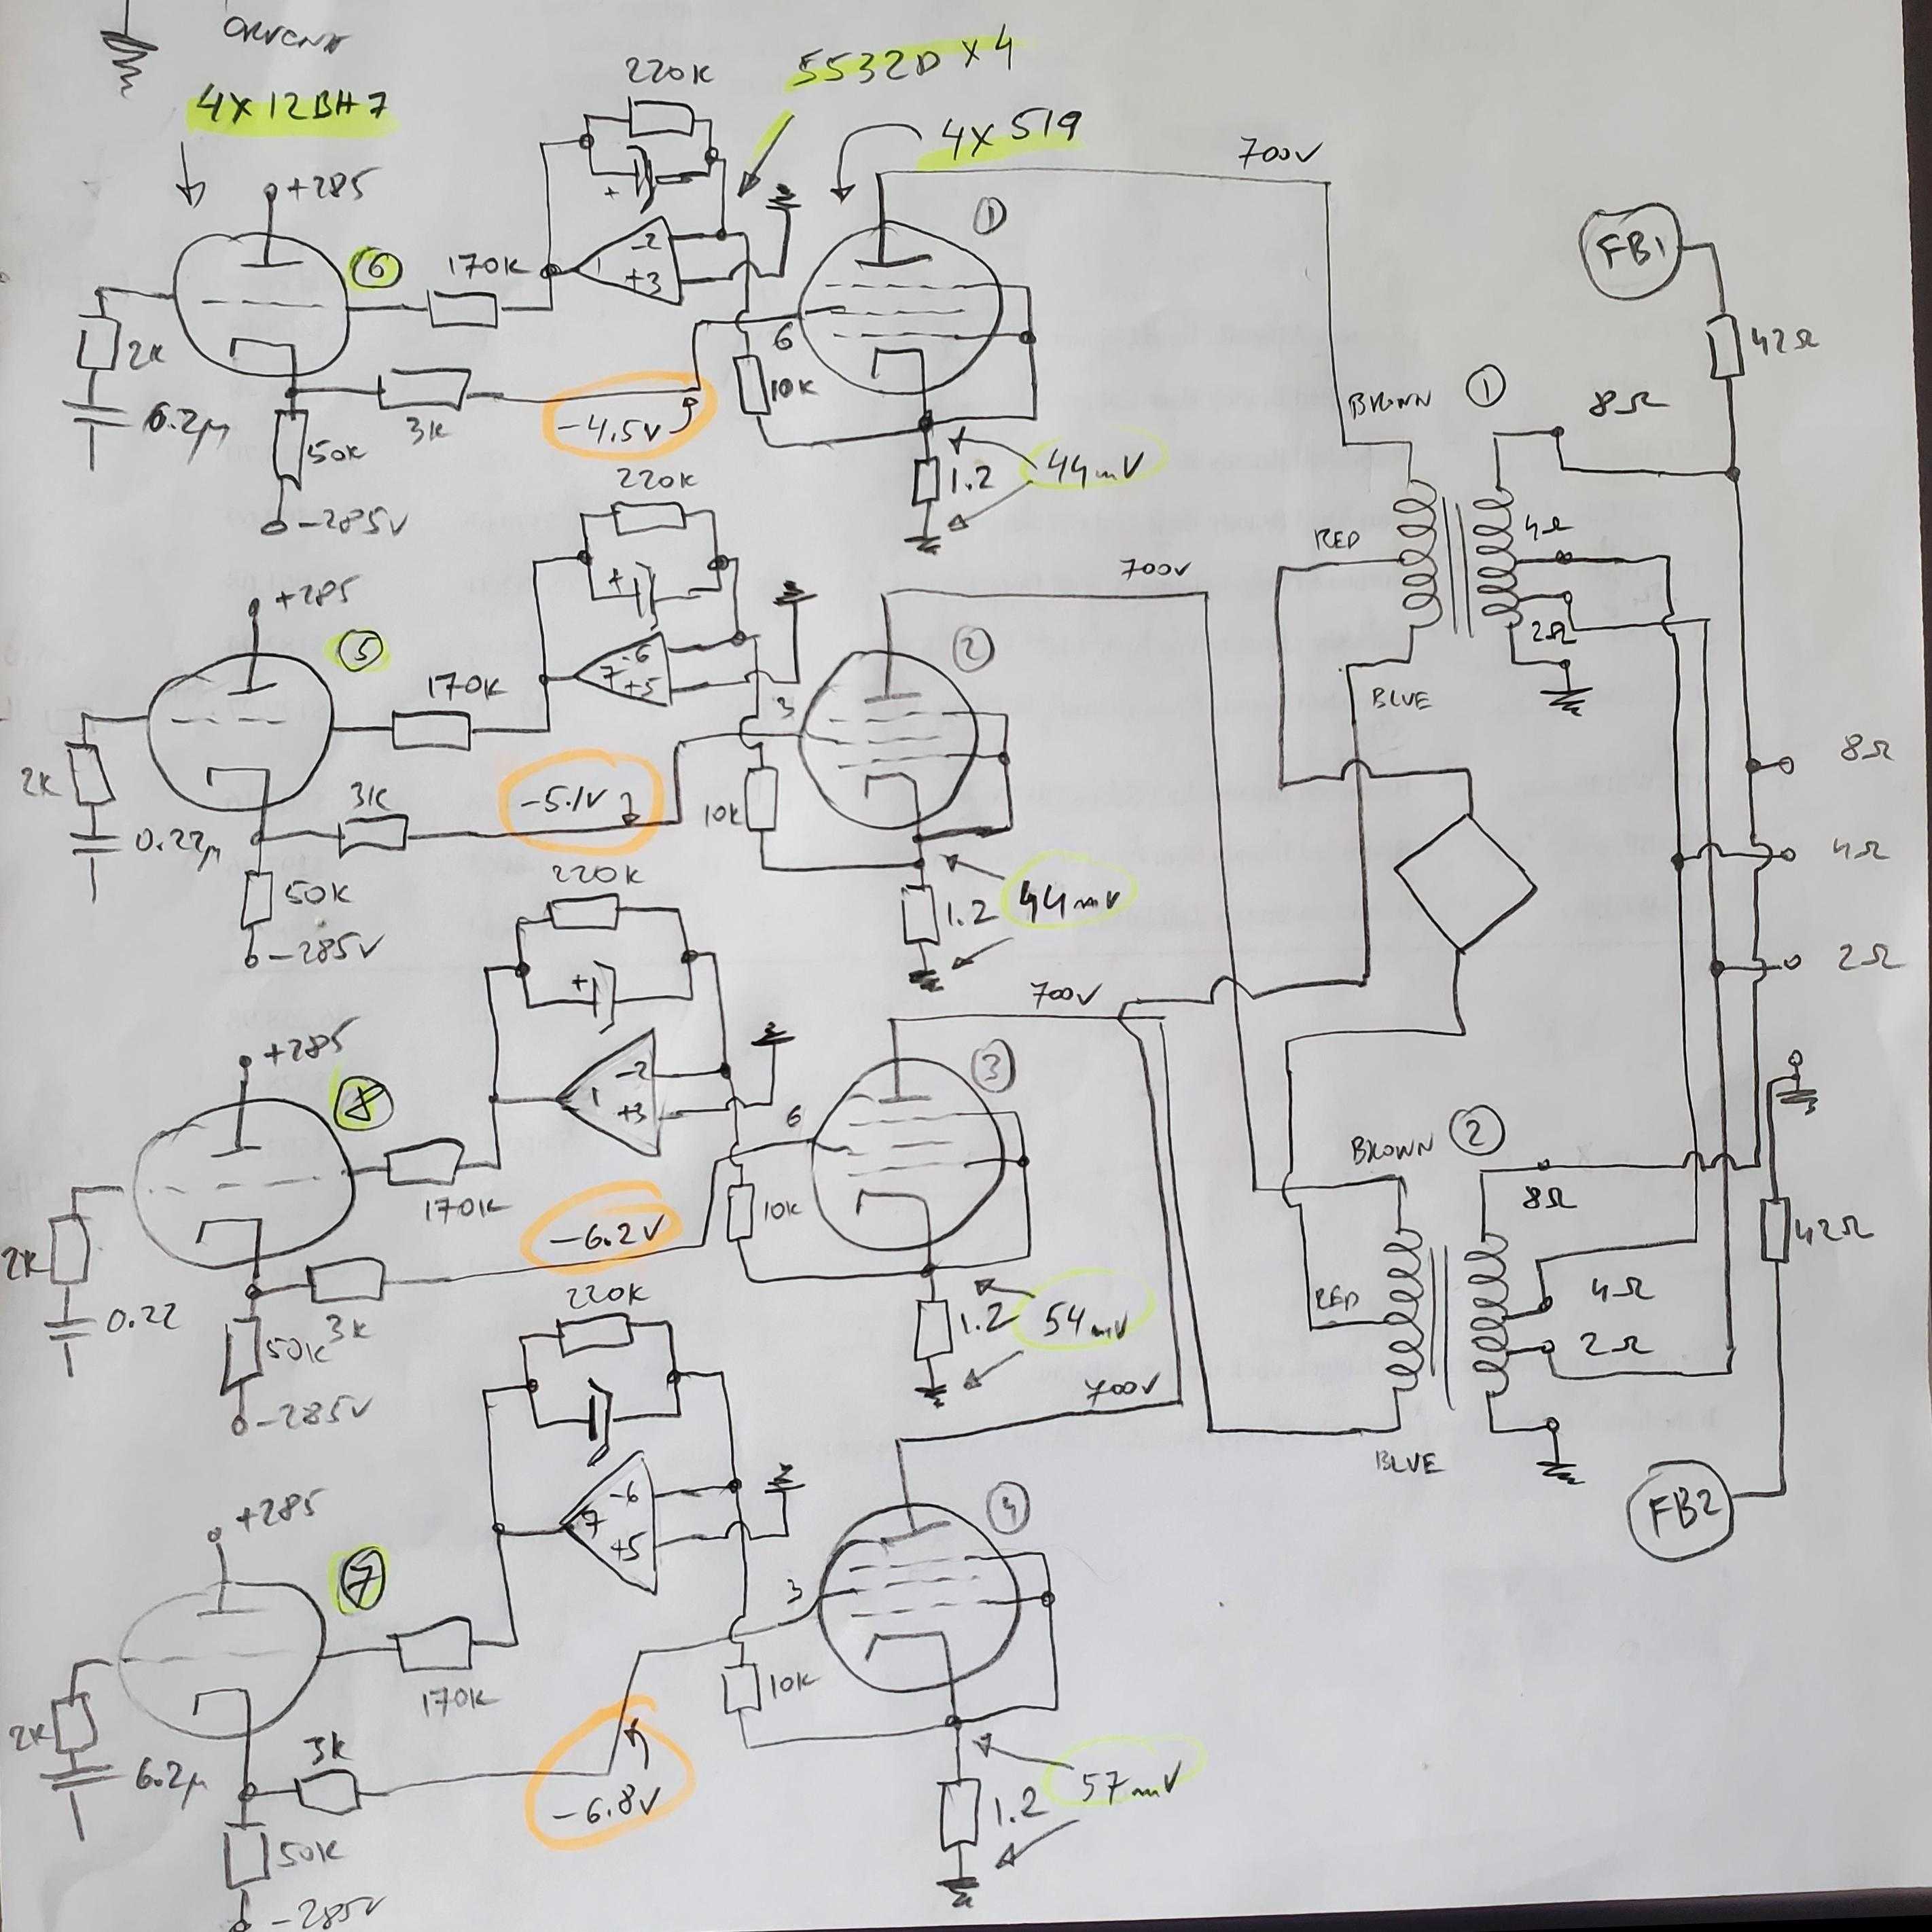 4X12BH7
5532D X 4
4X 519
220K
+
+285
6
170K
1
-2
+3
1
700V
2K
0.2µ
3K
50K
-285V
-4.5V
6
10K
1.2
44mV
FB1
42Ω
BROWN
1
8Ω
RED
4Ω
2Ω
BLUE
220K
+
+285
5
170K
7
-6
+5
2
700V
2K
0.22µ
3K
50K
-285V
-5.1V
3
10K
1.2
44mV
8Ω
4Ω
2Ω
220K
+
+285
8
170K
1
-2
+3
3
700V
2K
0.22
3K
50K
-285V
-6.2V
6
10K
1.2
54mV
BROWN
2
8Ω
RED
4Ω
2Ω
BLUE
42Ω
FB2
220K
+285
7
170K
7
-6
+5
4
700V
2K
0.2µ
3K
50K
-285V
-6.8V
3
10K
1.2
57mV